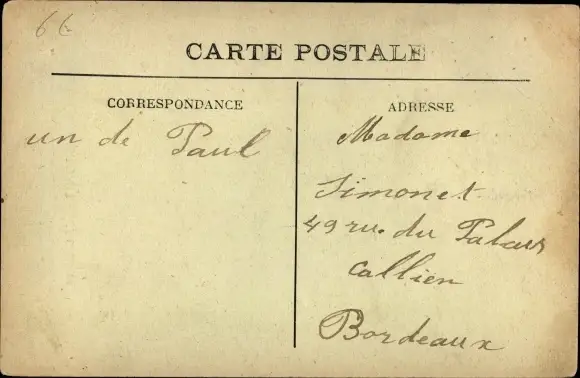 66
CARTE POSTALE
CORRESPONDANCE
un de Paul
ADRESSE
Madame
Simonet
49 ru. du Palais
Callien
Bordeaux